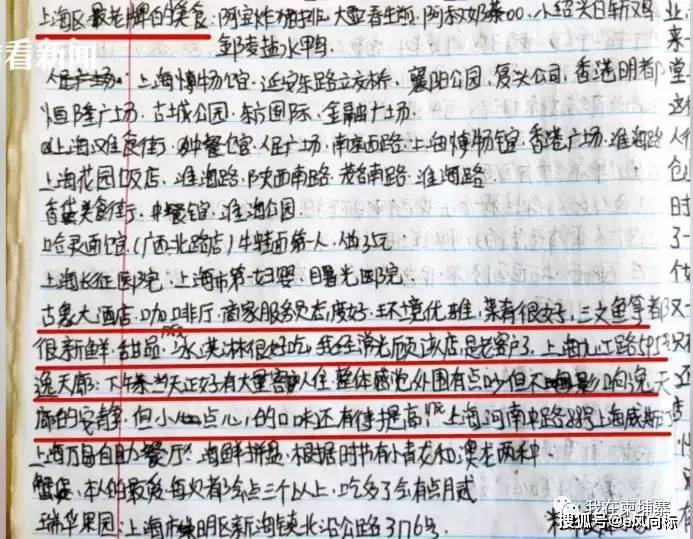 看看新闻
上海区最老牌的美食:阿宝炸猪排、大壶春生煎、阿叔奶茶00、小绍兴白斩鸡
盐水鸭
人民广场、上海博物馆、延安东路立交桥、襄阳公园、复兴公司、香港明都
恒隆广场、古城公园、东方国际、金融广场
上海美食街、中餐馆、人民广场、南京西路、上海博物馆、香港广场、淮海路
上海花园饭店、淮海路、陕西南路、茂名南路、淮海路
美食街、中餐馆、淮海公园
哈灵面馆(广西北路店)牛特面第一人、做25元
上海长征医院、上海市第一妇婴、曙光医院
古象大酒店、咖啡厅、商家服务员态度好、环境优雅、菜肴很好、三文鱼等都
很新鲜、甜品、冰淇淋很好吃、我经常光顾该店、是老客户了、上海九江路595
逸天廊:下午茶当天正好有大量客人住、整体感觉外围有点吵但不影响逸天
廊的安静、但小点心的口味还有待提高、上海河南中路 上海威斯
上海万自助餐厅:海鲜拼盘、根据时节有小青龙和澳龙两种
蟹、本人的最爱每次都会点三个以上、吃多了会有点月贰
瑞华果园:上海市崇明区新海镇北沿公路3176号
我在柬埔寨
搜狐号@风向标